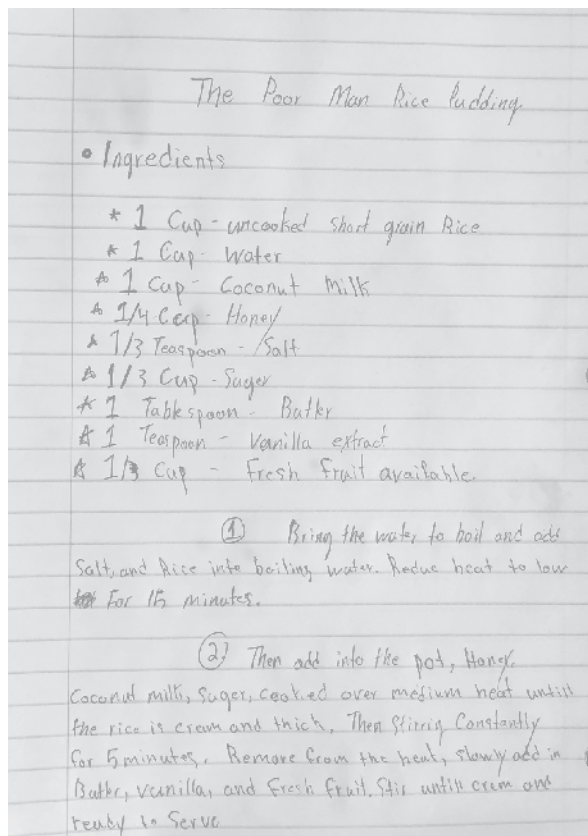 The Poor Man Rice Pudding
• Ingredients
* 1 Cup - uncooked short grain Rice
* 1 Cup - Water
* 1 Cup - Coconut Milk
* 1/4 Cup - Honey
* 1/3 Teaspoon - Salt
* 1/3 Cup - Suger
* 1 Tablespoon - Butter
* 1 Teaspoon - Vanilla extract
* 1/3 Cup - Fresh fruit available.
① Bring the water to boil and add
Salt, and Rice into boiling water. Reduce heat to low
For 15 minutes.
② Then add into the pot, Honey,
Coconut milk, Suger, cooked over medium heat untill
the rice is cream and thick, Then Stirrig Constantly
for 5 minutes. Remove from the heat, slowly add in
Butter, Vanilla, and Fresh fruit. Stir untill crem and
ready to Serve